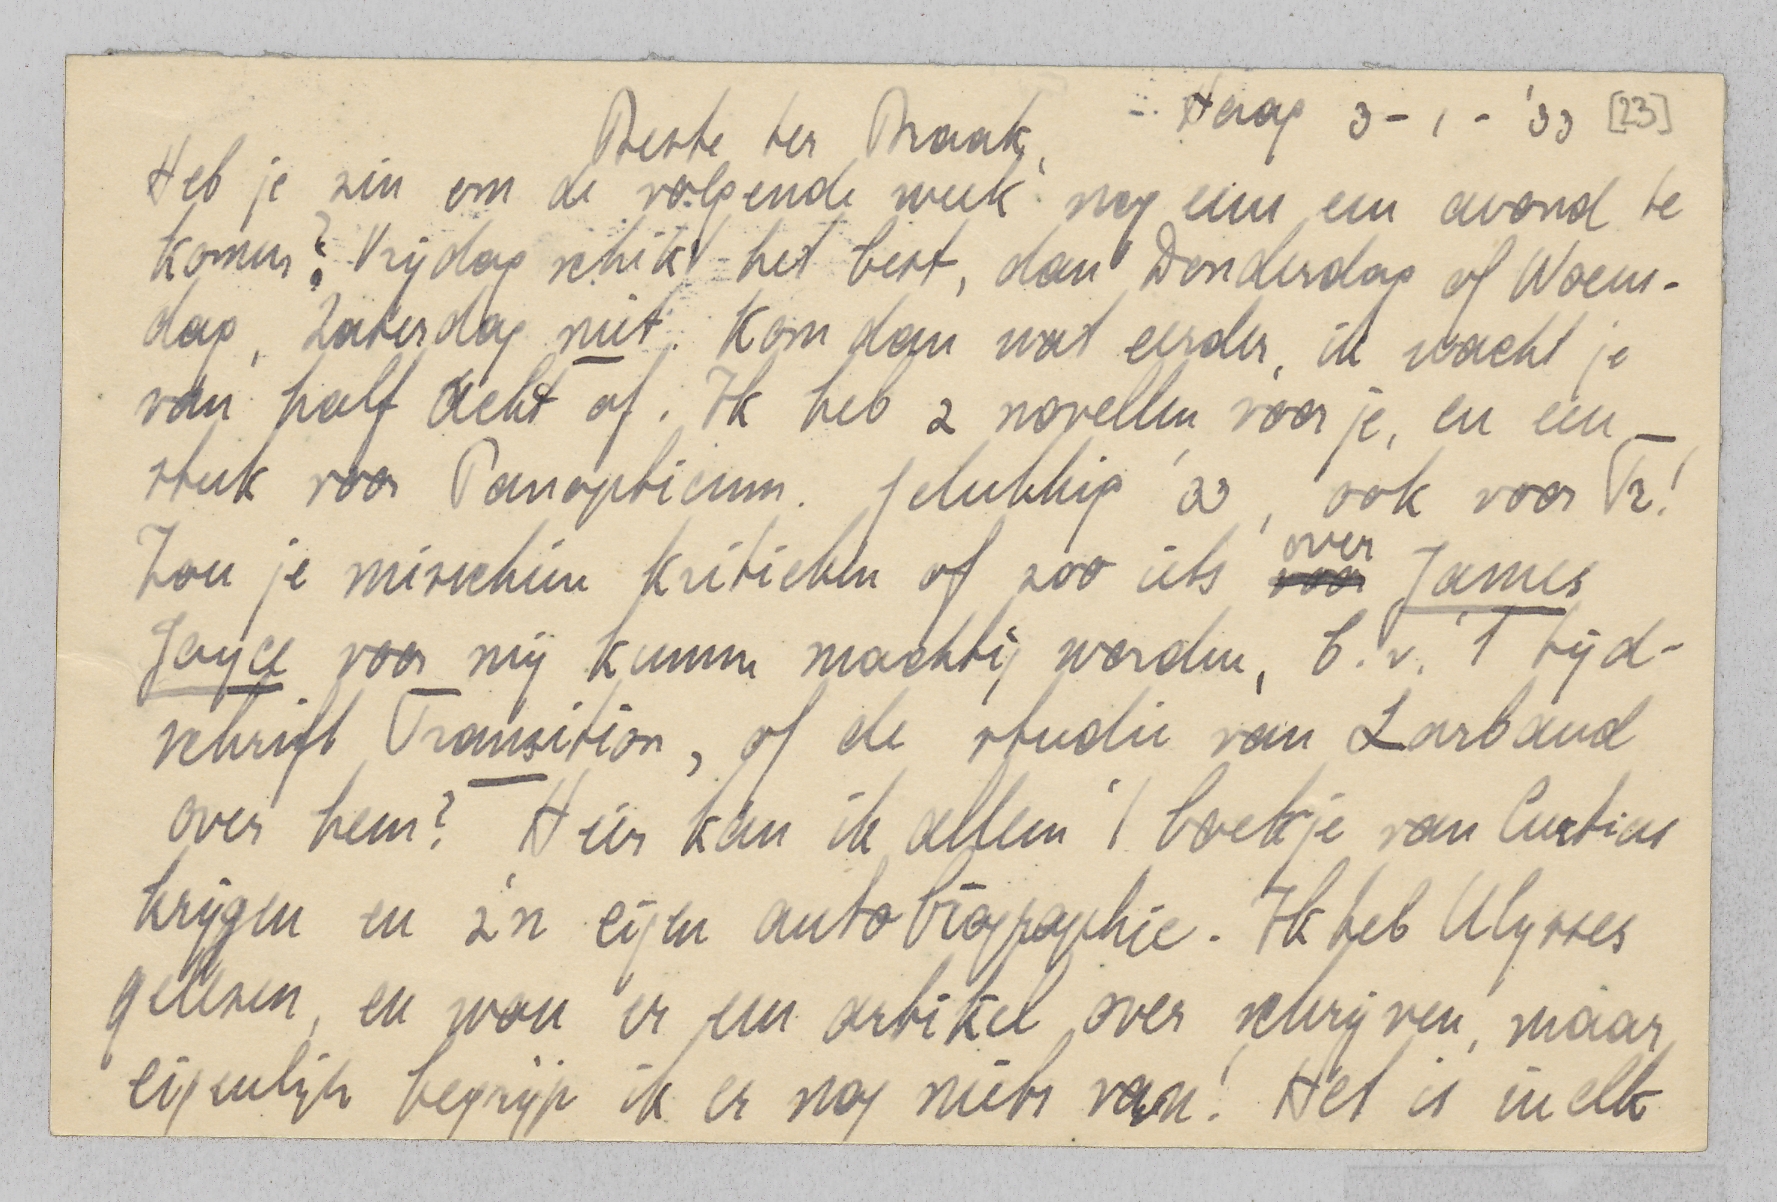 Haag 3-1-'33 [23]
Beste ter Braak,
Heb je zin om de volgende week nog eens een avond te
komen? Vrijdag schikt het best, dan Donderdag of Woens-
dag, Zaterdag niet. Kom dan wat eerder, ik wacht je
van half acht af. Ik heb 2 novellen voor je, en een
stuk voor Panopticum. Gelukkig '33, ook voor Tr!
Zou je misschien kritieken of zoo iets over James
Joyce voor mij kunnen machtig worden, b.v. 't tijd-
schrift Transition, of de studie van Larbaud
over hem? Hier kan ik alleen 't boekje van Curtius
krijgen en z'n eigen autobiographie. Ik heb Ulysses
gelezen, en wou er een artikel over schrijven, maar
eigenlijk begrijp ik er nog niets van! Het is in elk